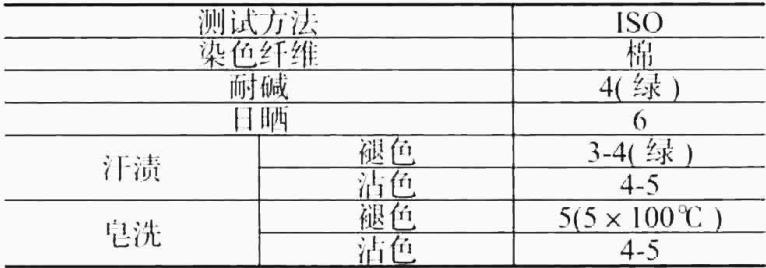 测试方法 ISO
染色纤维 棉
耐碱 4(绿)
日晒 6
汗渍 褪色 3-4(绿)
沾色 4-5
皂洗 褪色 5(5×100℃)
沾色 4-5